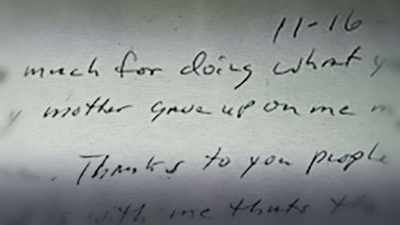 11-16
much for doing what y
y mother gave up on me m
Thanks to you people
with me thats